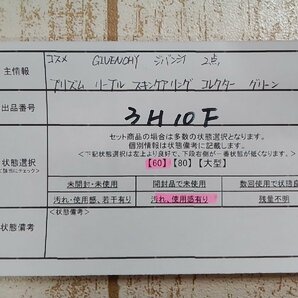 コスメ GIVENCHY ジバンシイ 2点
主情報
プリズム リーブル スキンケアリング コレクター グリーン
出品番号
3H10F
セット商品の場合は多数の状態となります。
個別情報は状態備考に記載します。
状態選択
(該当にチェック)
<下記状態選択は左上より良好で、下段右側が一番状態が低くなります。>
【60】【80】【大型】
未開封・未使用 開封品で未使用 数回使用で状態良
汚れ・使用感、若干有り 汚れ、使用感有り 残量不明
<状態備考>
状態備考